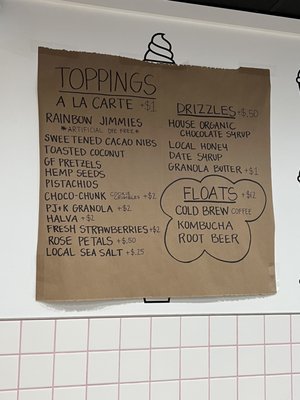 TOPPINGS
A LA CARTE +$1
RAINBOW JIMMIES
*ARTIFICIAL DYE FREE*
SWEETENED CACAO NIBS
TOASTED COCONUT
GF PRETZELS
HEMP SEEDS
PISTACHIOS
CHOCO-CHUNK +$2
PJ+K GRANOLA +$2
HALVA +$2
FRESH STRAWBERRIES +$2
ROSE PETALS +$.50
LOCAL SEA SALT +$.25
DRIZZLES +$.50
HOUSE ORGANIC
CHOCOLATE SYRUP
LOCAL HONEY
DATE SYRUP
GRANOLA BUTTER +$1
FLOATS +$12
COLD BREW COFFEE
KOMBUCHA
ROOT BEER